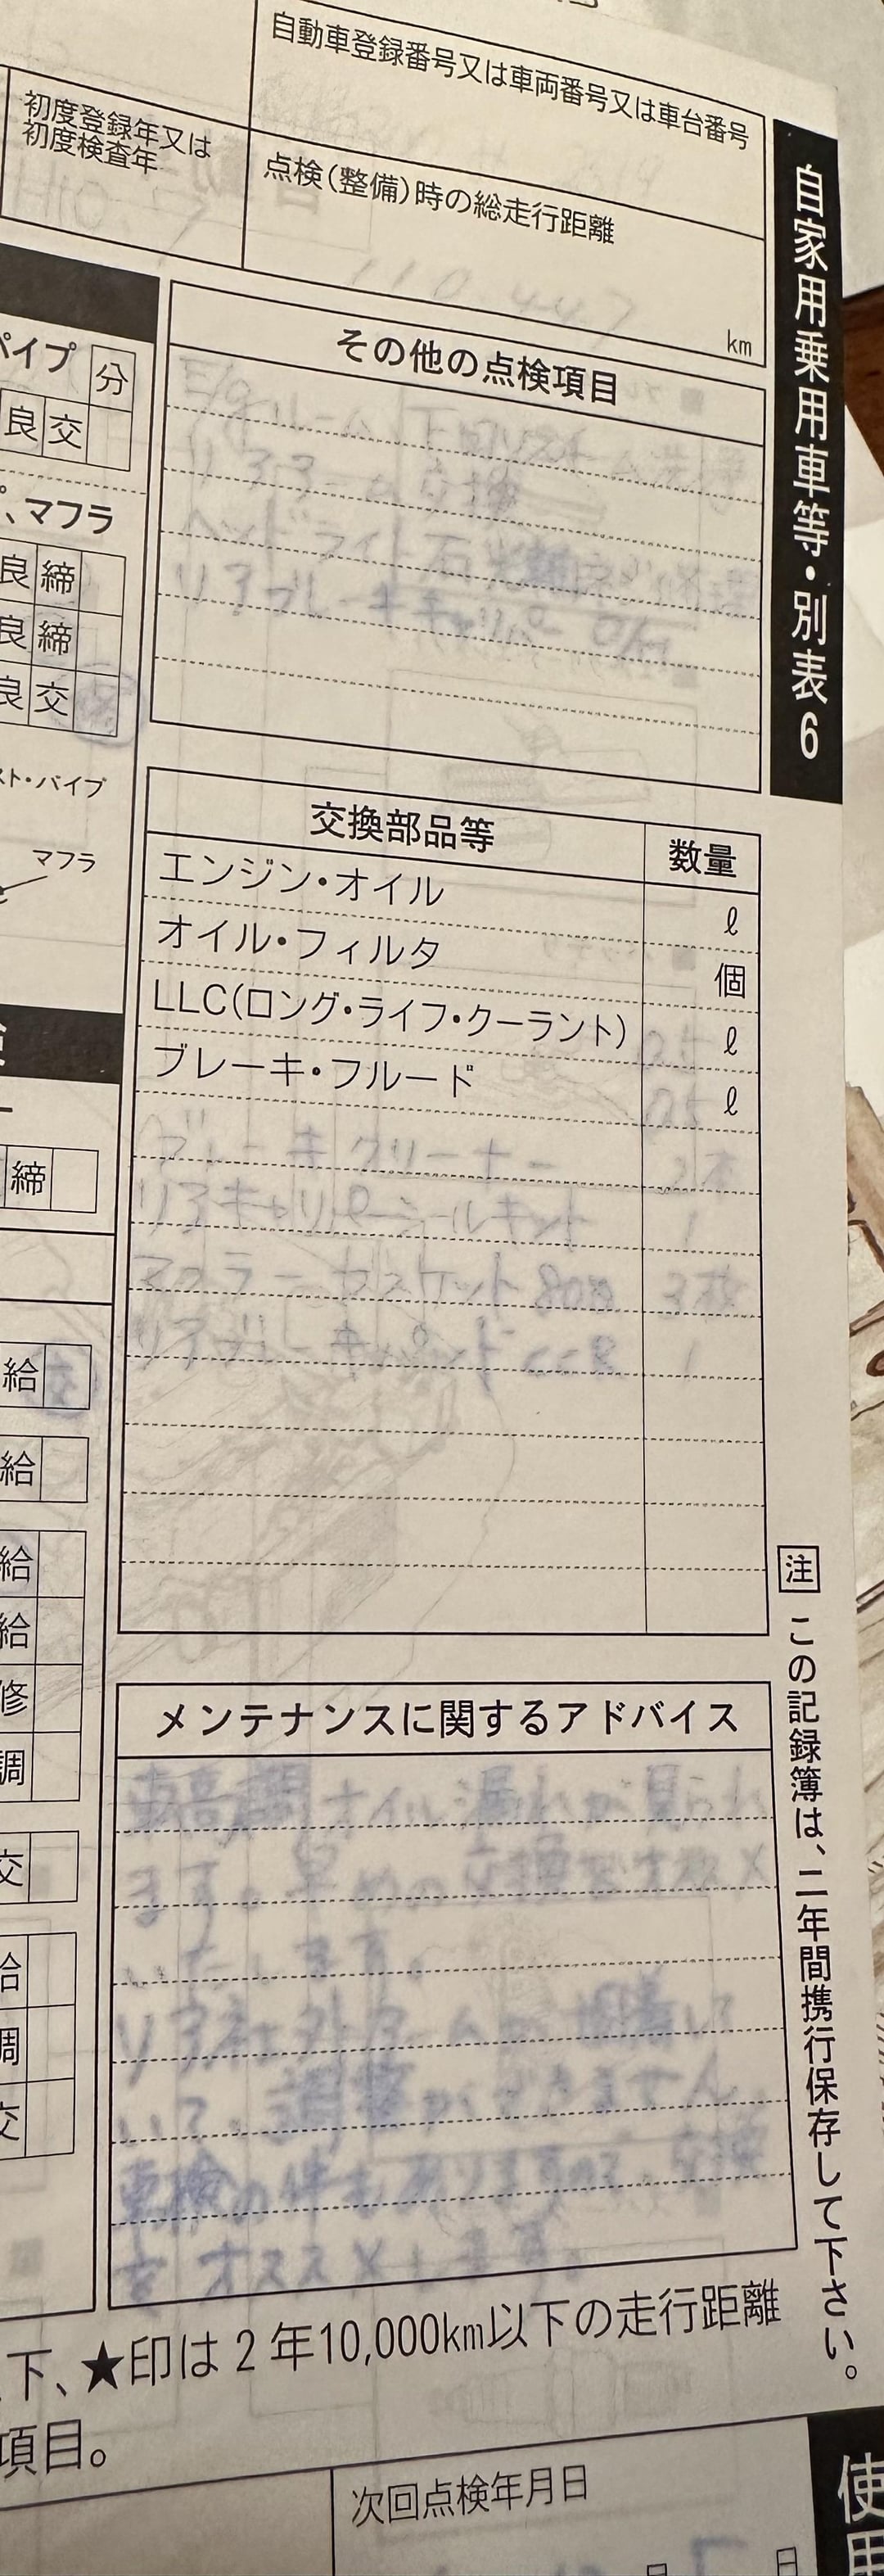 自動車登録番号又は車両番号又は車台番号
初度登録年又は
初度検査年
点検(整備)時の総走行距離
110,447
km
自家用乗用車等・別表6
その他の点検項目
リアアーム 交換
ヘッドライト
リアブレーキキャリパー O/H
パイプ
分
良 交
、マフラ
良 締
良 締
良 交
スト・パイプ
マフラ
締
給
給
給
給
修
調
交
給
調
交
交換部品等 数量
エンジン・オイル ℓ
オイル・フィルタ 個
LLC(ロング・ライフ・クーラント) 0.5 ℓ
ブレーキ・フルード 0.5 ℓ
ブレーキクリーナー 2本
リアキャリパーシールキット 1
マフラーガスケット 3枚
リアブレーキパッド 1
メンテナンスに関するアドバイス
オイル漏れが見られ
ます。早めの交換をオススメ
いたします。
リア
いて、調整ができません。
車検の件もありますので、交換
をオススメします。
注 この記録簿は、二年間携行保存して下さい。
下、★印は2年10,000km以下の走行距離
項目。
次回点検年月日
月 日
使用